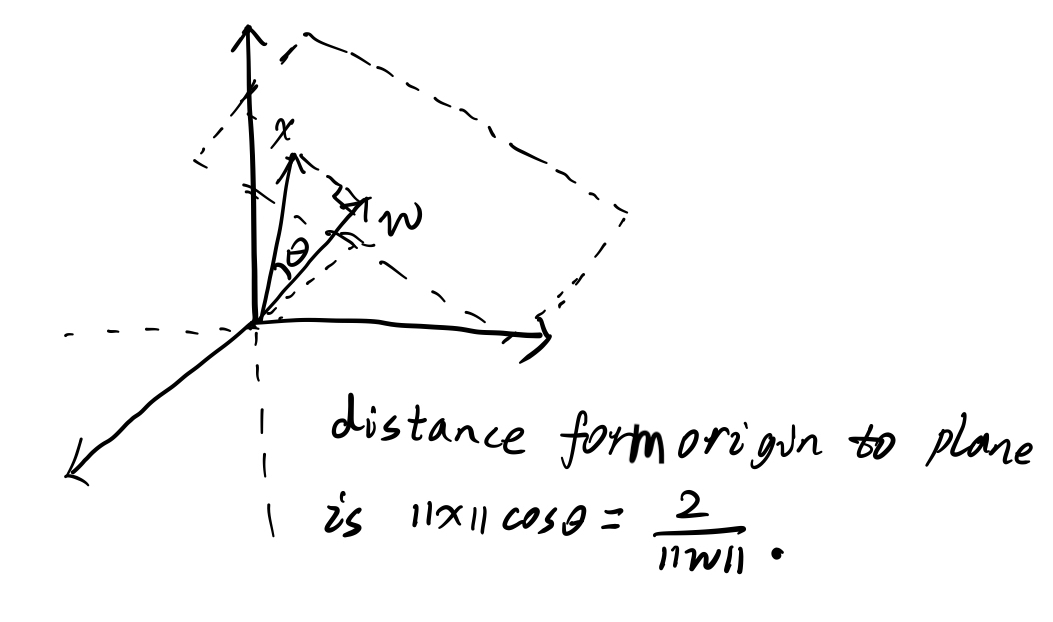 x
w
θ
distance form origin to plane
is ||x|| cosθ = 2/||w|| .